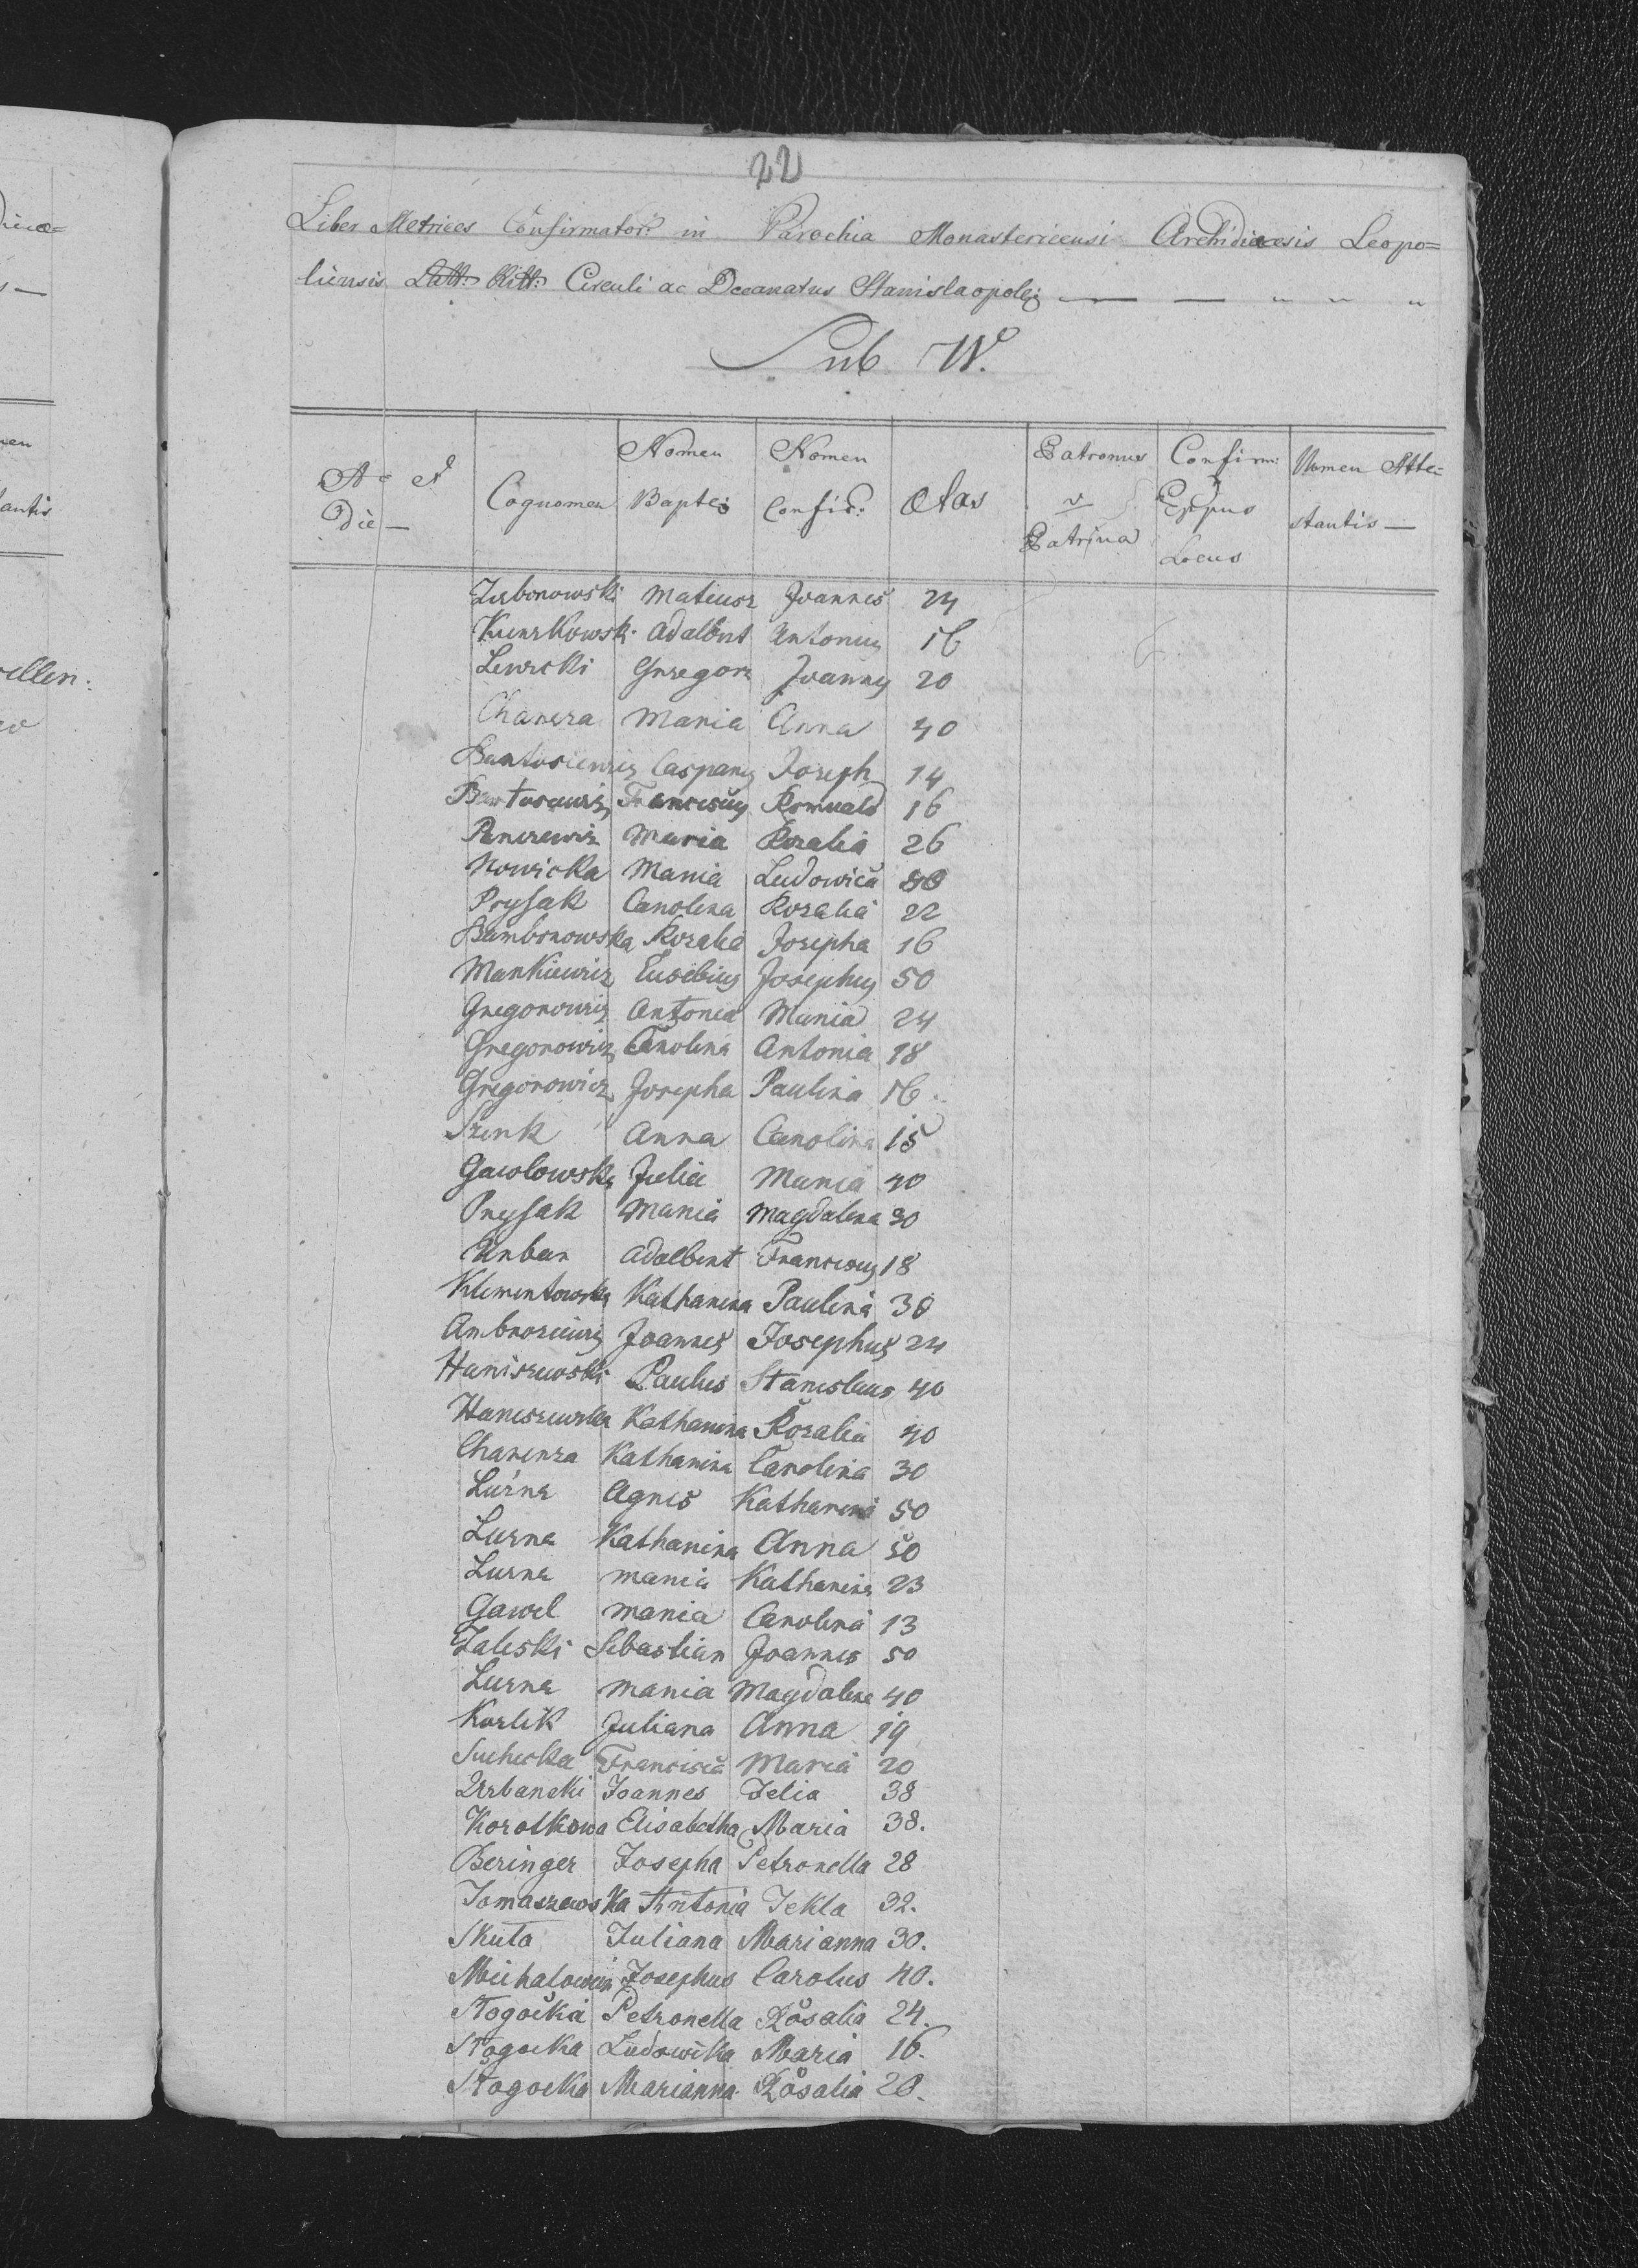 22
Liber Metrices Confirmator: in Parochia Monastericensi Archidiaecesis Leopo=
liensis Latt: Ritt: Circuli ac Decanatus Stanislaopol:
Sub W.
Ao et Die — Cognomen Nomen Baptis Nomen Confir: Etas Patronus v Patrina Confirm: Eppus Locus Nomen Atte= stantis —
Zubonowski Mateusz Joannes 24
Adalbert Antonius 16
Lewicki Grzegorz Joannes 20
Maria Anna 40
Bartosiewicz Casparus Joseph 14
Bartosiewicz Franciscus Romuald 16
Maria Rozalia 26
Nowicka Maria Ludowica
Prysak Carolina Rozalia 22
Dambrowska Rozalia Josepha 16
Mankiewicz Eusebius Josephus 50
Gregorowicz Antonia Maria 24
Gregorowicz Carolina Antonia 18
Gregorowicz Josepha Paulina 16.
Szenk Anna Carolina 15
Gawlowska Julia Maria 40
Prysak Maria Magdalena 30
Urban Adalbert Franciscus 18
Klementowska Katharina Paulina 30
Ambroziewicz Joannes Josephus 24
Haniszewski Paulus Stanislaus 40
Haniszewska Katharina Rozalia 40
Katharina Carolina 30
Luzna Agnes Katharina 50
Luzna Katharina Anna 50
Luzna Maria Katharina 23
Gawel Maria Carolina 13
Zaleski Sebastian Joannes 50
Luzna Maria Magdalena 40
Kozlik Juliana Anna 19
Suchecka Francisca Maria 20
Urbanski Joannes Felix 38
Korotkowa Elisabetha Maria 38.
Beringer Josepha Petronella 28
Tomaszewska Antonia Tekla 32.
Skuta Juliana Marianna 30.
Michalowicz Josephus Carolus 40.
Stogocka Petronella Rosalia 24.
Stogocka Ludowika Maria 16.
Stogocka Marianna Rosalia 20.